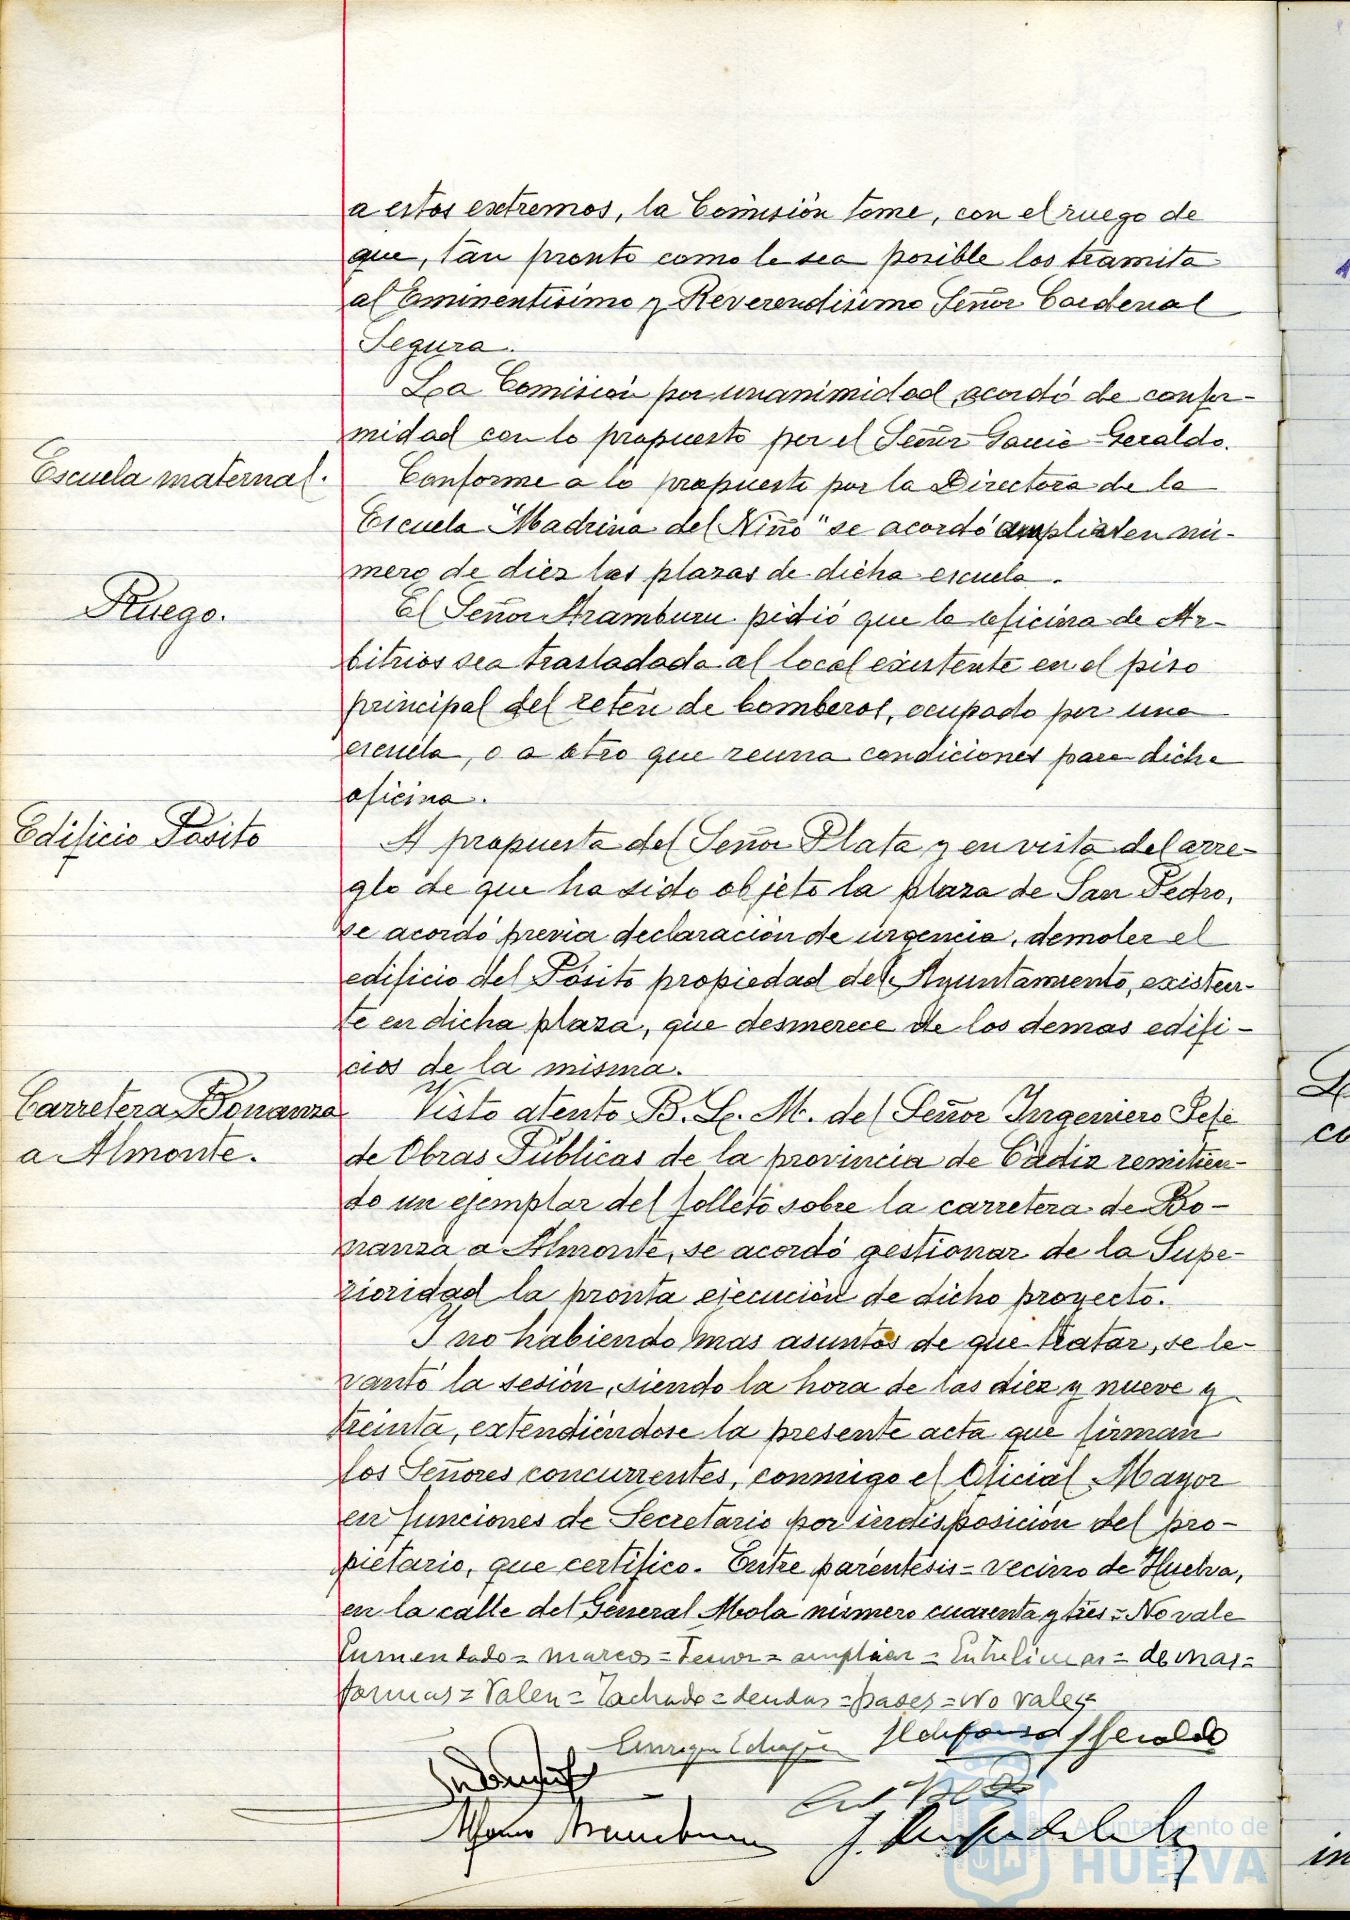 a estos extremos, la Comisión tome, con el ruego de
que, tan pronto como le sea posible los tramita
al Eminentisimo y Reverendisimo Señor Cardenal
Segura.
La Comisión por unanimidad acordó de confor-
midad con lo propuesto por el Señor Garcia Geraldo.
Escuela maternal.
Conforme a lo propuesto por la Directora de la
Escuela "Madrina del Niño" se acordó ampliar en nú-
mero de diez las plazas de dicha escuela.
Ruego.
El Señor Aramburu pidió que la oficina de Ar-
bitrios sea trasladada al local existente en el piso
principal del retén de bomberos, ocupado por una
escuela, o a otro que reuna condiciones para dicha
oficina.
Edificio Pósito
A propuesta del Señor Plata y en vista del arre-
glo de que ha sido objeto la plaza de San Pedro,
se acordó previa declaración de urgencia, demoler el
edificio del Pósito propiedad del Ayuntamiento, existen-
te en dicha plaza, que desmerece de los demas edifi-
cios de la misma.
Carretera Bonanza
a Almonte.
Visto atento B. L. M. del Señor Ingeniero Jefe
de Obras Públicas de la provincia de Cádiz remitien-
do un ejemplar del folleto sobre la carretera de Bo-
nanza a Almonte, se acordó gestionar de la Supe-
rioridad la pronta ejecución de dicho proyecto.
Y no habiendo mas asuntos de que tratar, se le-
vantó la sesión, siendo la hora de las diez y nueve y
treinta, extendiéndose la presente acta que firman
los Señores concurrentes, conmigo el Oficial Mayor
en funciones de Secretario por indisposición del pro-
pietario, que certifico. Entre paréntesis = vecino de Huelva,
en la calle del General Mola número cuarenta y tres = No vale
Enmendado = marcos = Tenor = ampliar = Entrelineas = demas =
formas = Valen = Tachado = deudas = pases = No valen
Ildefonso Geraldo
Ayuntamiento de
HUELVA